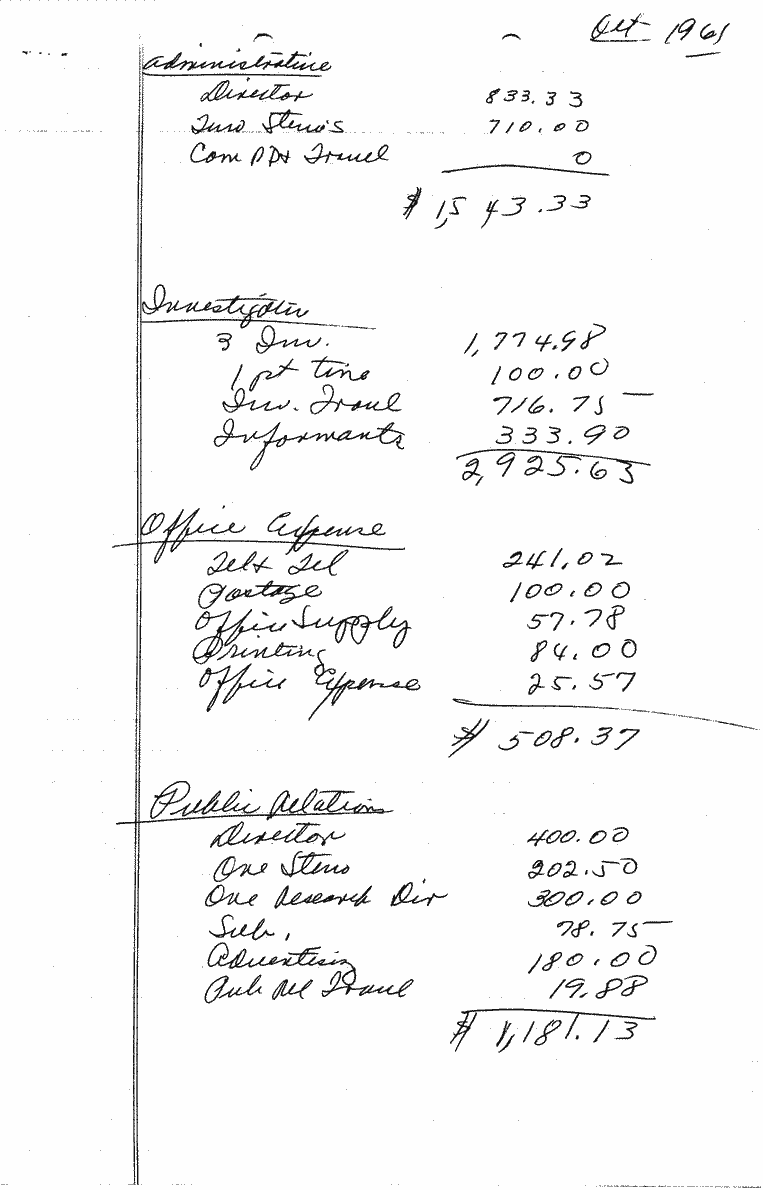 Oct 1961
Administrative
Director 833.33
Two Steno's 710.00
Com Travel 0
$ 1,543.33
Investigation
3 Inv. 1,774.98
1 pt time 100.00
Inv. Travel 716.75
Informants 333.90
2,925.63
Office Expense
Tel & Tel 241.02
Postage 100.00
Office Supply 57.78
Printing 84.00
Office Expense 25.57
$ 508.37
Public Relations
Director 400.00
One Steno 202.50
One Research Dir 300.00
Sub. 78.75
Advertising 180.00
Pub Rel Travel 19.88
$ 1,181.13